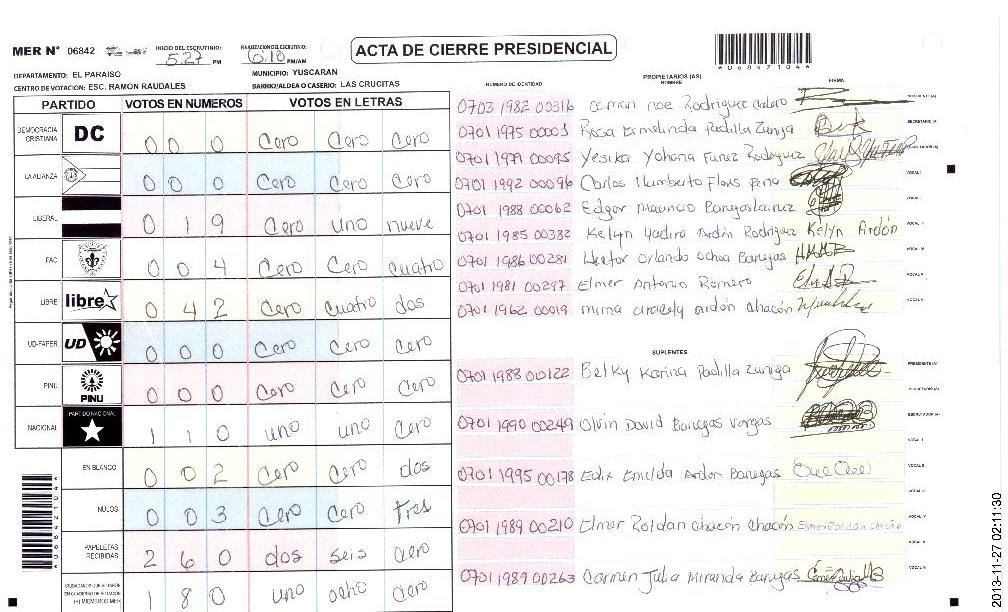 MER N° 06842 INICIO DEL ESCRUTINIO: 5:27 PM FINALIZACION DEL ESCRUTINIO: 6:10 PM/AM
ACTA DE CIERRE PRESIDENCIAL
*068421044*
DEPARTAMENTO: EL PARAISO MUNICIPIO: YUSCARAN
CENTRO DE VOTACION: ESC. RAMON RAUDALES BARRIO/ALDEA O CASERIO: LAS CRUCITAS
PARTIDO VOTOS EN NUMEROS VOTOS EN LETRAS
DEMOCRACIA CRISTIANA DC 0 0 0 Cero Cero Cero
LA ALIANZA 0 0 0 Cero Cero Cero
LIBERAL 0 1 9 Cero uno nueve
FAC 0 0 4 Cero Cero cuatro
LIBRE libre 0 4 2 Cero cuatro dos
UD-FAPER UD 0 0 0 Cero Cero Cero
PINU PINU 0 0 0 Cero Cero Cero
NACIONAL PARTIDO NACIONAL 1 1 0 uno uno Cero
EN BLANCO 0 0 2 Cero Cero dos
NULOS 0 0 3 Cero Cero tres
PAPELETAS RECIBIDAS 2 6 0 dos seis cero
1 8 0 uno ocho cero
NUMERO DE IDENTIDAD PROPIETARIOS (AS) NOMBRE FIRMA
0703 1982 00316 noe Rodriguez
0701 1975 00003 Rosa Ermelinda Padilla Zuniga
0701 1979 00095 Yesika Yohana Funez Rodriguez
0701 1992 00096 Carlos Humberto Flores
0701 1988 00062 Edgar Mauricio
0701 1985 00382 Kelyn Yadira Ardón Rodriguez Kelyn Ardón
0701 1986 00281 Hector Orlando Ochoa Banegas
0701 1981 00297 Elmer Antonio Romero
0701 1962 00019 mirna aracely ardón chacón
SUPLENTES
0701 1988 00122 Belky Karina Padilla Zuniga
0701 1990 00249 Olvin David Banegas Vargas
0701 1995 00178 Edix Emelda Ardon Banegas
0701 1989 00210 Elmer Roldan chacón chacón
0701 1989 00263 Carmen Julia Miranda Banegas
2013-11-27 02:11:30